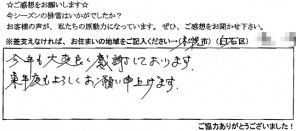 ☆ご感想をお願いします☆
今シーズンの排雪はいかがでしたか？
お客様の声が、私たちの原動力になっています。ぜひ、ご感想をお聞かせ下さい。
※差支えなければ、お住まいの地域をご記入ください→(札幌市)(白石区)
今年も大変良く感謝しております。
来年度もよろしくお願い申上げます。
ご協力ありがとうございました！